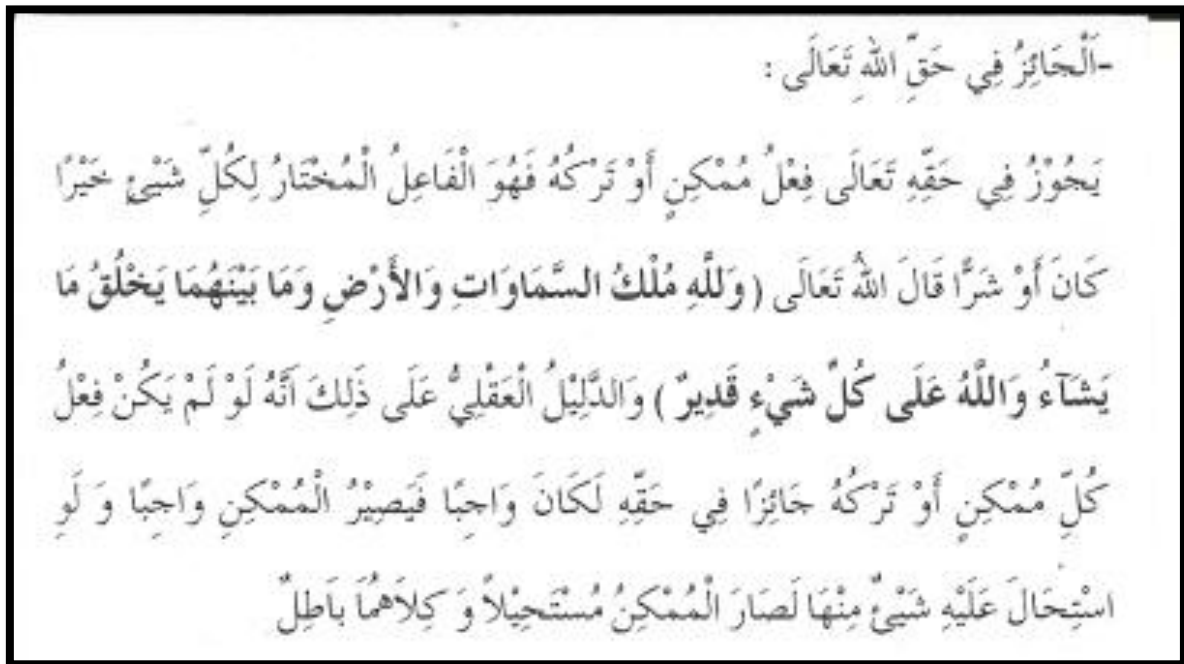 -اَلْجَائِزُ فِي حَقِّ اللهِ تَعَالَى :
يَجُوْزُ فِي حَقِّهِ تَعَالَى فِعْلُ مُمْكِنٍ أَوْ تَرْكُهُ فَهُوَ الْفَاعِلُ الْمُخْتَارُ لِكُلِّ شَيْئٍ خَيْرًا
كَانَ أَوْ شَرًّا قَالَ اللهُ تَعَالَى ( وَلِلَّهِ مُلْكُ السَّمَاوَاتِ وَالأَرْضِ وَمَا بَيْنَهُمَا يَخْلُقُ مَا
يَشَآءُ وَاللَّهُ عَلَى كُلِّ شَيْءٍ قَدِيرٌ ) وَالدَّلِيْلُ الْعَقْلِيُّ عَلَى ذَلِكَ اَنَّهُ لَوْ لَمْ يَكُنْ فِعْلُ
كُلِّ مُمْكِنٍ أَوْ تَرْكُهُ جَائِزًا فِي حَقِّهِ لَكَانَ وَاجِبًا فَيَصِيْرُ الْمُمْكِنِ وَاجِبًا وَ لَوِ
اسْتِحَالَ عَلَيْهِ شَيْئٌ مِنْهَا لَصَارَ الْمُمْكِنُ مُسْتَحِيْلاً وَ كِلاَهُمَا بَاطِلٌ